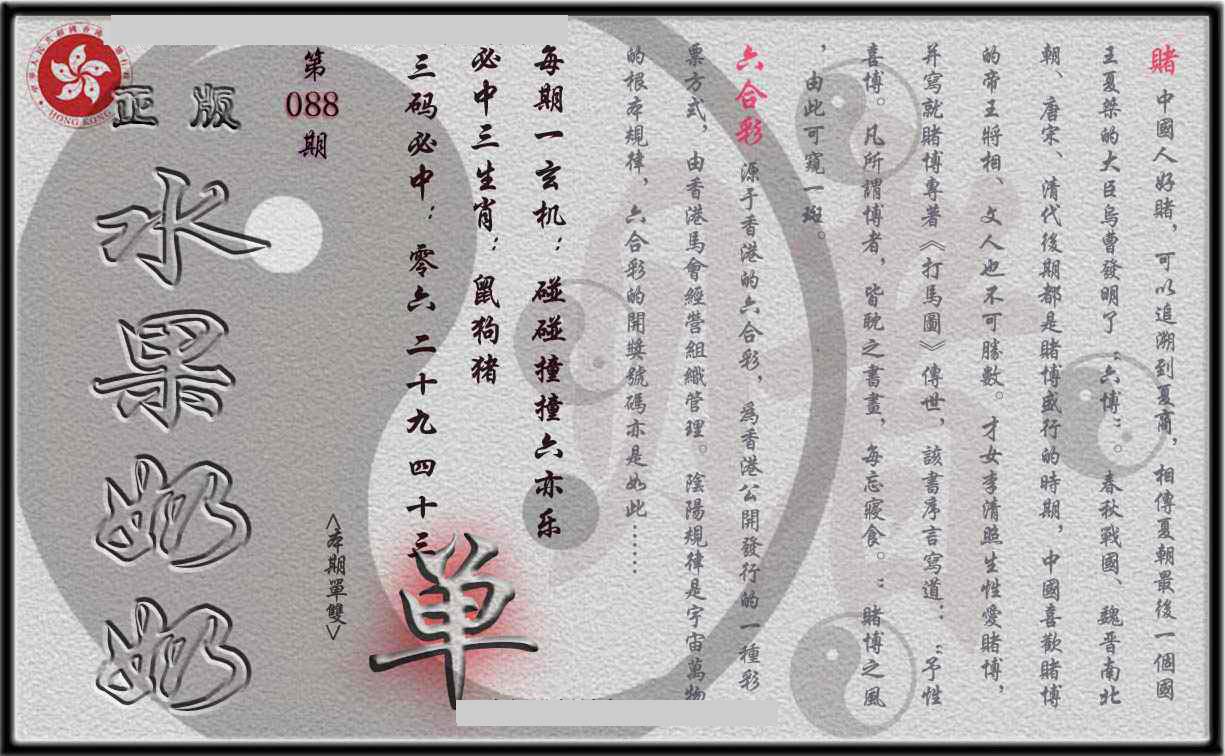 賭 中國人好賭，可以追溯到夏商，相傳夏朝最後一個國
王夏桀的大臣烏曹發明了“六博”。春秋戰國、魏晋南北
朝、唐宋、清代後期都是賭博盛行的時期，中國喜歡賭博
的帝王將相、文人也不可勝數。才女李清照生性愛賭博，
并寫就賭博專著《打馬圖》傳世，該書序言寫道：“予性
喜博。凡所謂博者，皆耽之書畫，每忘寢食。”賭博之風
，由此可窺一斑。
六合彩 源于香港的六合彩，爲香港公開發行的一種彩
票方式，由香港馬會經營組織管理。陰陽規律是宇宙萬物
的根本規律，六合彩的開獎號碼亦是如此……
每期一玄机：碰碰撞撞六亦乐
必中三生肖：鼠狗猪
三码必中：零六二十九四十三
单
<本期單雙>
第
088
期
正版
水果奶奶
HONG KONG